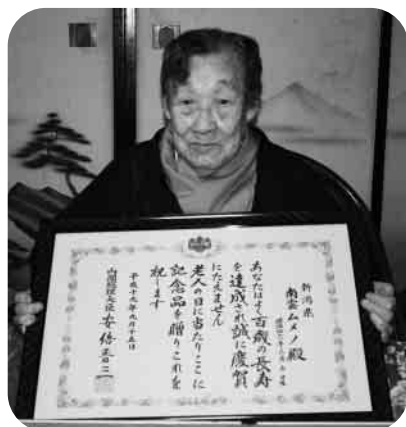 新潟県
南雲ムメノ殿
あなたはよく百歳の長寿
を達成され誠に慶賀
にたえません
老人の日に当たりここに
記念品を贈りこれを
祝します
平成十九年九月十五日
内閣総理大臣 安倍晋三